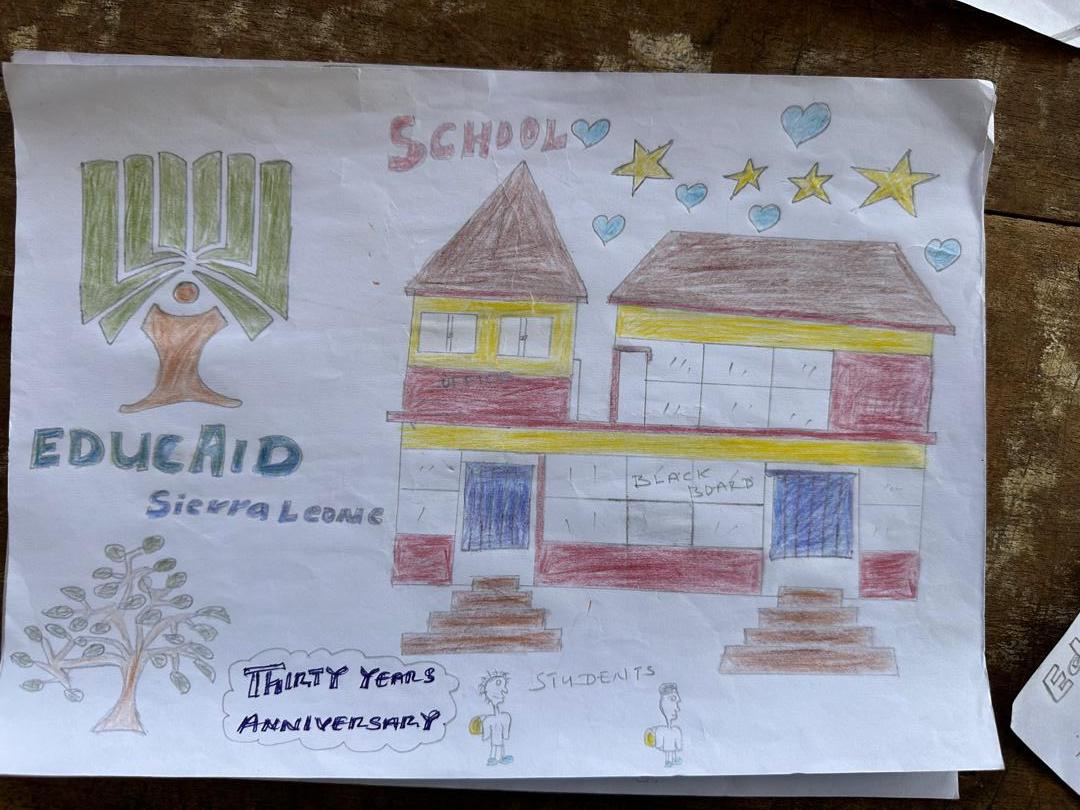 SCHOOL
OFFICE
EDUCAID
Sierra Leone
BLACK
BOARD
THIRTY YEARS
ANNIVERSARY
STUDENTS